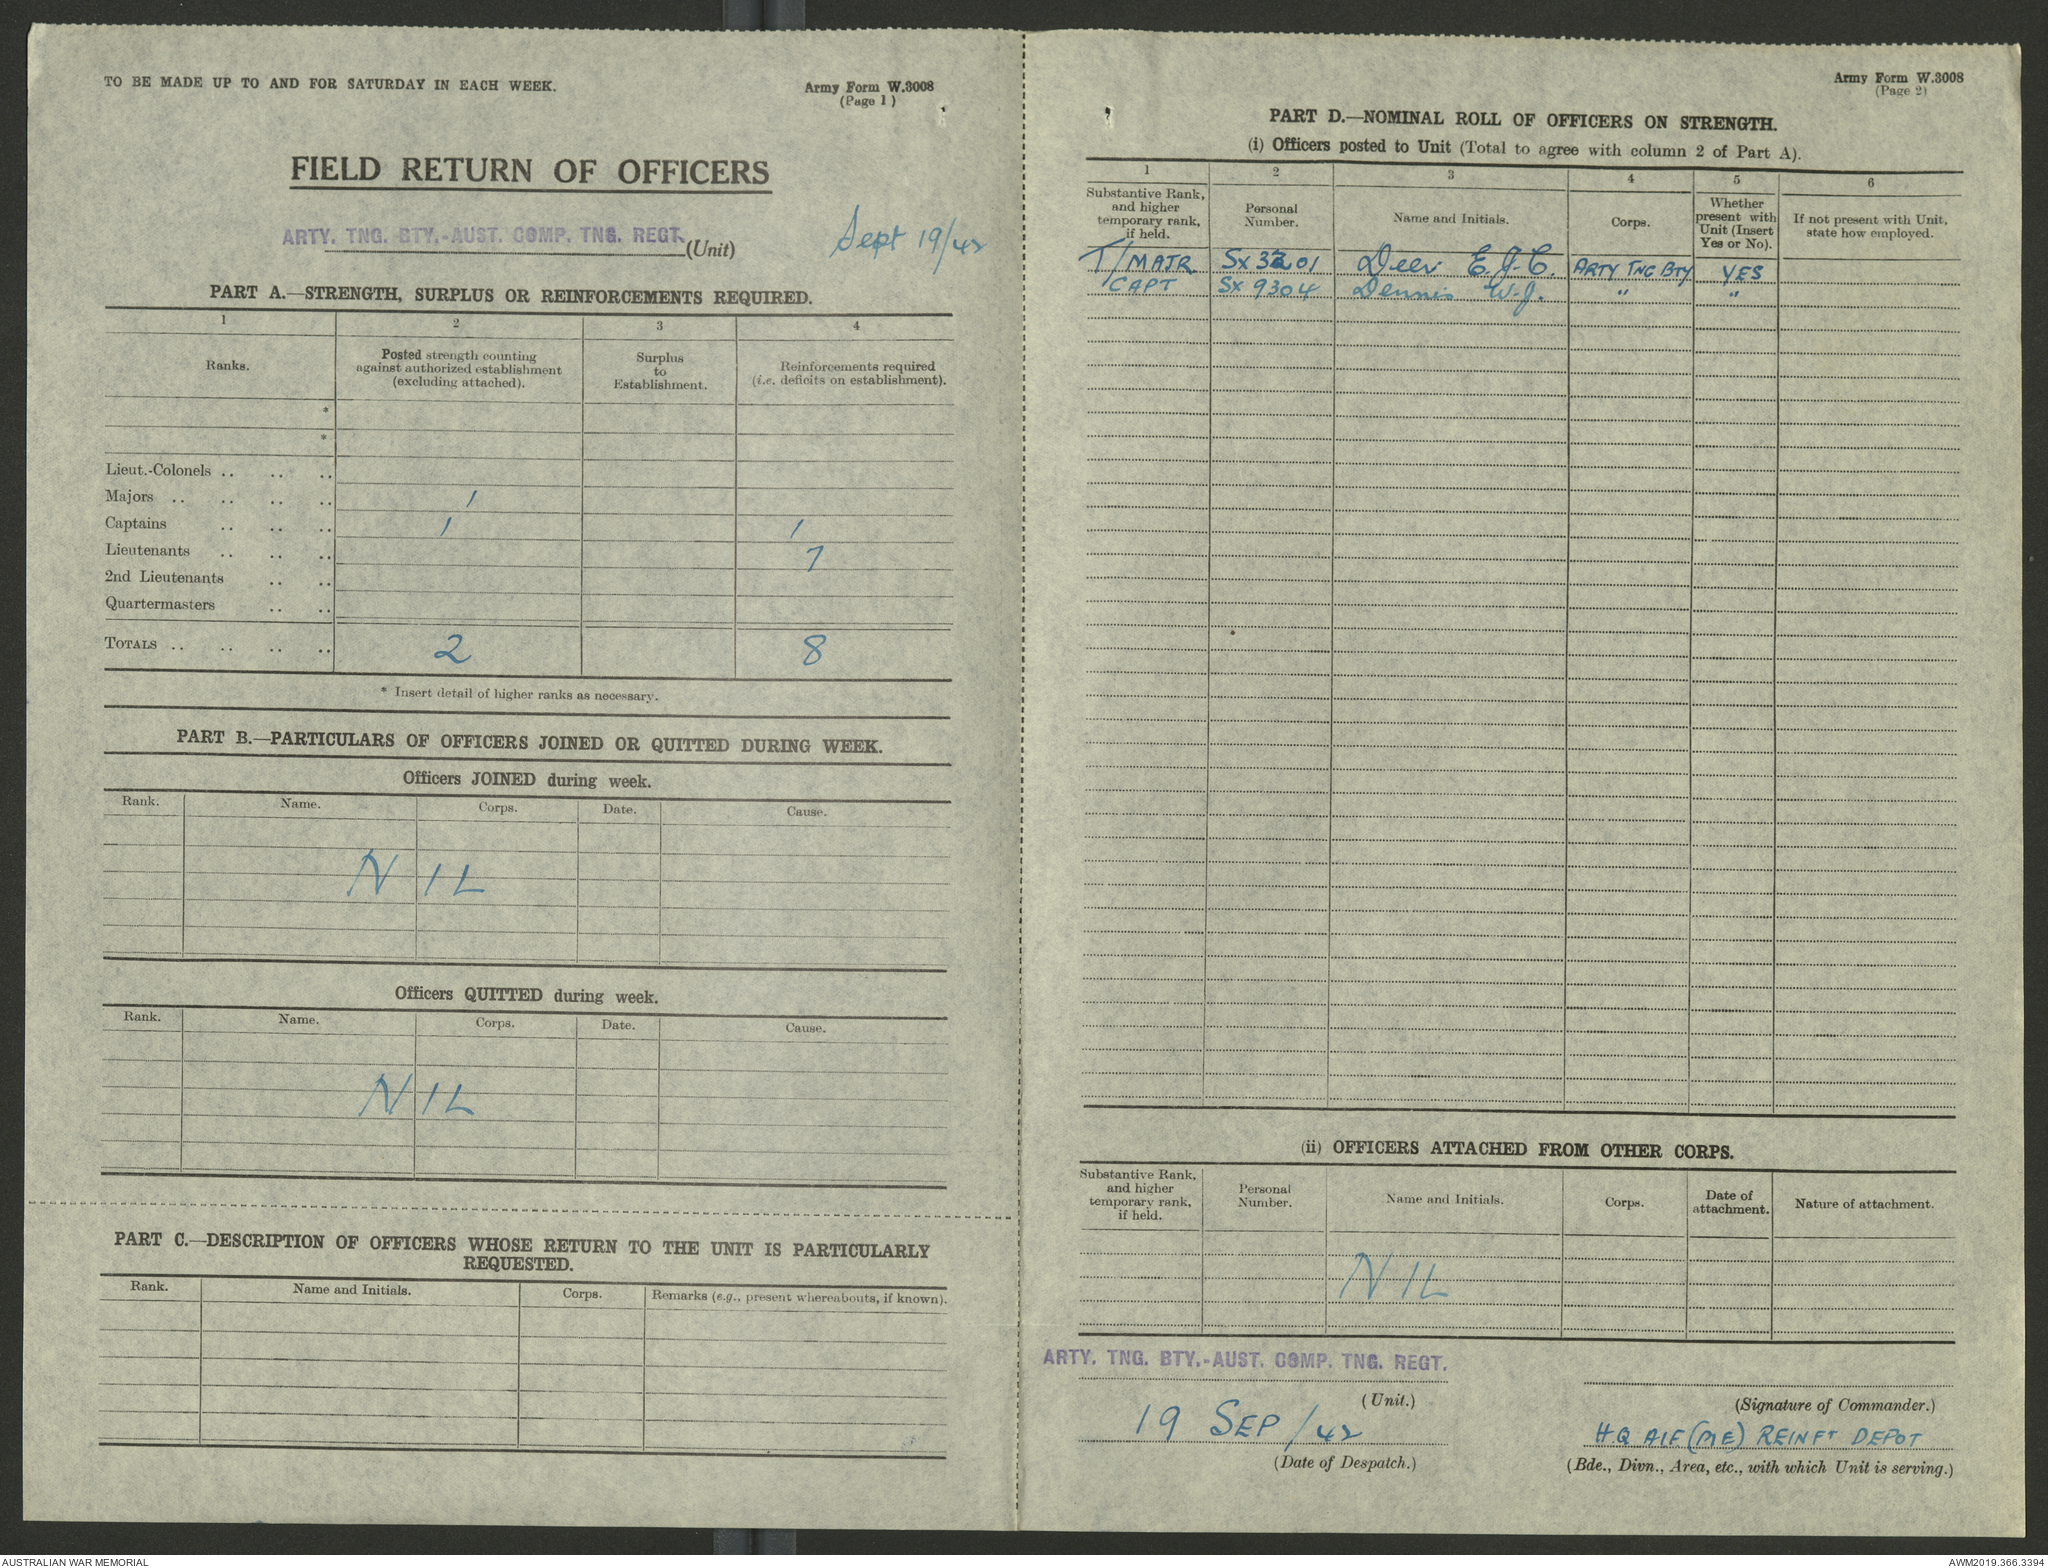 TO BE MADE UP TO AND FOR SATURDAY IN EACH WEEK.
Army Form W.3008
(Page 1)
FIELD RETURN OF OFFICERS
ARTY. TNG. BTY.-AUST. COMP. TNG. REGT. (Unit)
Sept 19/42
PART A.—STRENGTH, SURPLUS OR REINFORCEMENTS REQUIRED.
1 2 3 4
Ranks.
Posted strength counting
against authorized establishment
(excluding attached).
Surplus
to
Establishment.
Reinforcements required
(i.e. deficits on establishment).
*
*
Lieut.-Colonels .. .. ..
Majors .. .. .. .. 1
Captains .. .. .. 1 1
Lieutenants .. .. .. 7
2nd Lieutenants .. ..
Quartermasters .. ..
TOTALS .. .. .. .. 2 8
* Insert detail of higher ranks as necessary.
PART B.—PARTICULARS OF OFFICERS JOINED OR QUITTED DURING WEEK.
Officers JOINED during week.
Rank. Name. Corps. Date. Cause.
NIL
Officers QUITTED during week.
Rank. Name. Corps. Date. Cause.
NIL
PART C.—DESCRIPTION OF OFFICERS WHOSE RETURN TO THE UNIT IS PARTICULARLY
REQUESTED.
Rank. Name and Initials. Corps. Remarks (e.g., present whereabouts, if known).
Army Form W.3008
(Page 2)
PART D.—NOMINAL ROLL OF OFFICERS ON STRENGTH.
(i) Officers posted to Unit (Total to agree with column 2 of Part A).
1 2 3 4 5 6
Substantive Rank,
and higher
temporary rank,
if held.
Personal
Number.
Name and Initials.
Corps.
Whether
present with
Unit (Insert
Yes or No).
If not present with Unit,
state how employed.
T/MAJR Sx3201 Deer E.J.C. ARTY TNG BTY YES
CAPT Sx9304 Dennis W.J. " "
(ii) OFFICERS ATTACHED FROM OTHER CORPS.
Substantive Rank,
and higher
temporary rank,
if held.
Personal
Number.
Name and Initials.
Corps.
Date of
attachment.
Nature of attachment.
NIL
ARTY. TNG. BTY.-AUST. COMP. TNG. REGT.
(Unit.)
19 SEP/42
(Date of Despatch.)
(Signature of Commander.)
HQ AIF (ME) REINFT DEPOT
(Bde., Divn., Area, etc., with which Unit is serving.)
AUSTRALIAN WAR MEMORIAL
AWM2019.366.3394